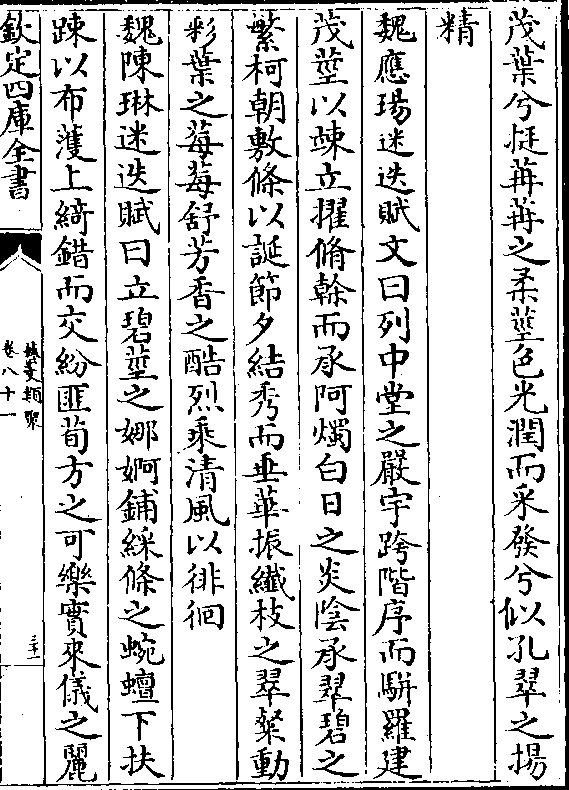 茂葉兮挺苒苒之柔莖色光潤而采發兮似孔翠之揚
精
魏應瑒迷迭賦文曰列中堂之嚴宇跨階序而騈羅建
茂莖以竦立擢脩幹而承阿燭白日之炎陰承翠碧之
繁柯朝敷條以誕節夕結秀而垂華振纎枝之翠粲動
彩葉之莓莓舒芳香之酷烈乘清風以徘徊
魏陳琳迷迭賦曰立碧莖之娜婀鋪綵條之蜿蟺下扶
踈以布濩上綺錯而交紛匪荀方之可樂實來儀之麗
欽定四庫全書
藝文類聚
卷八十一
三十一